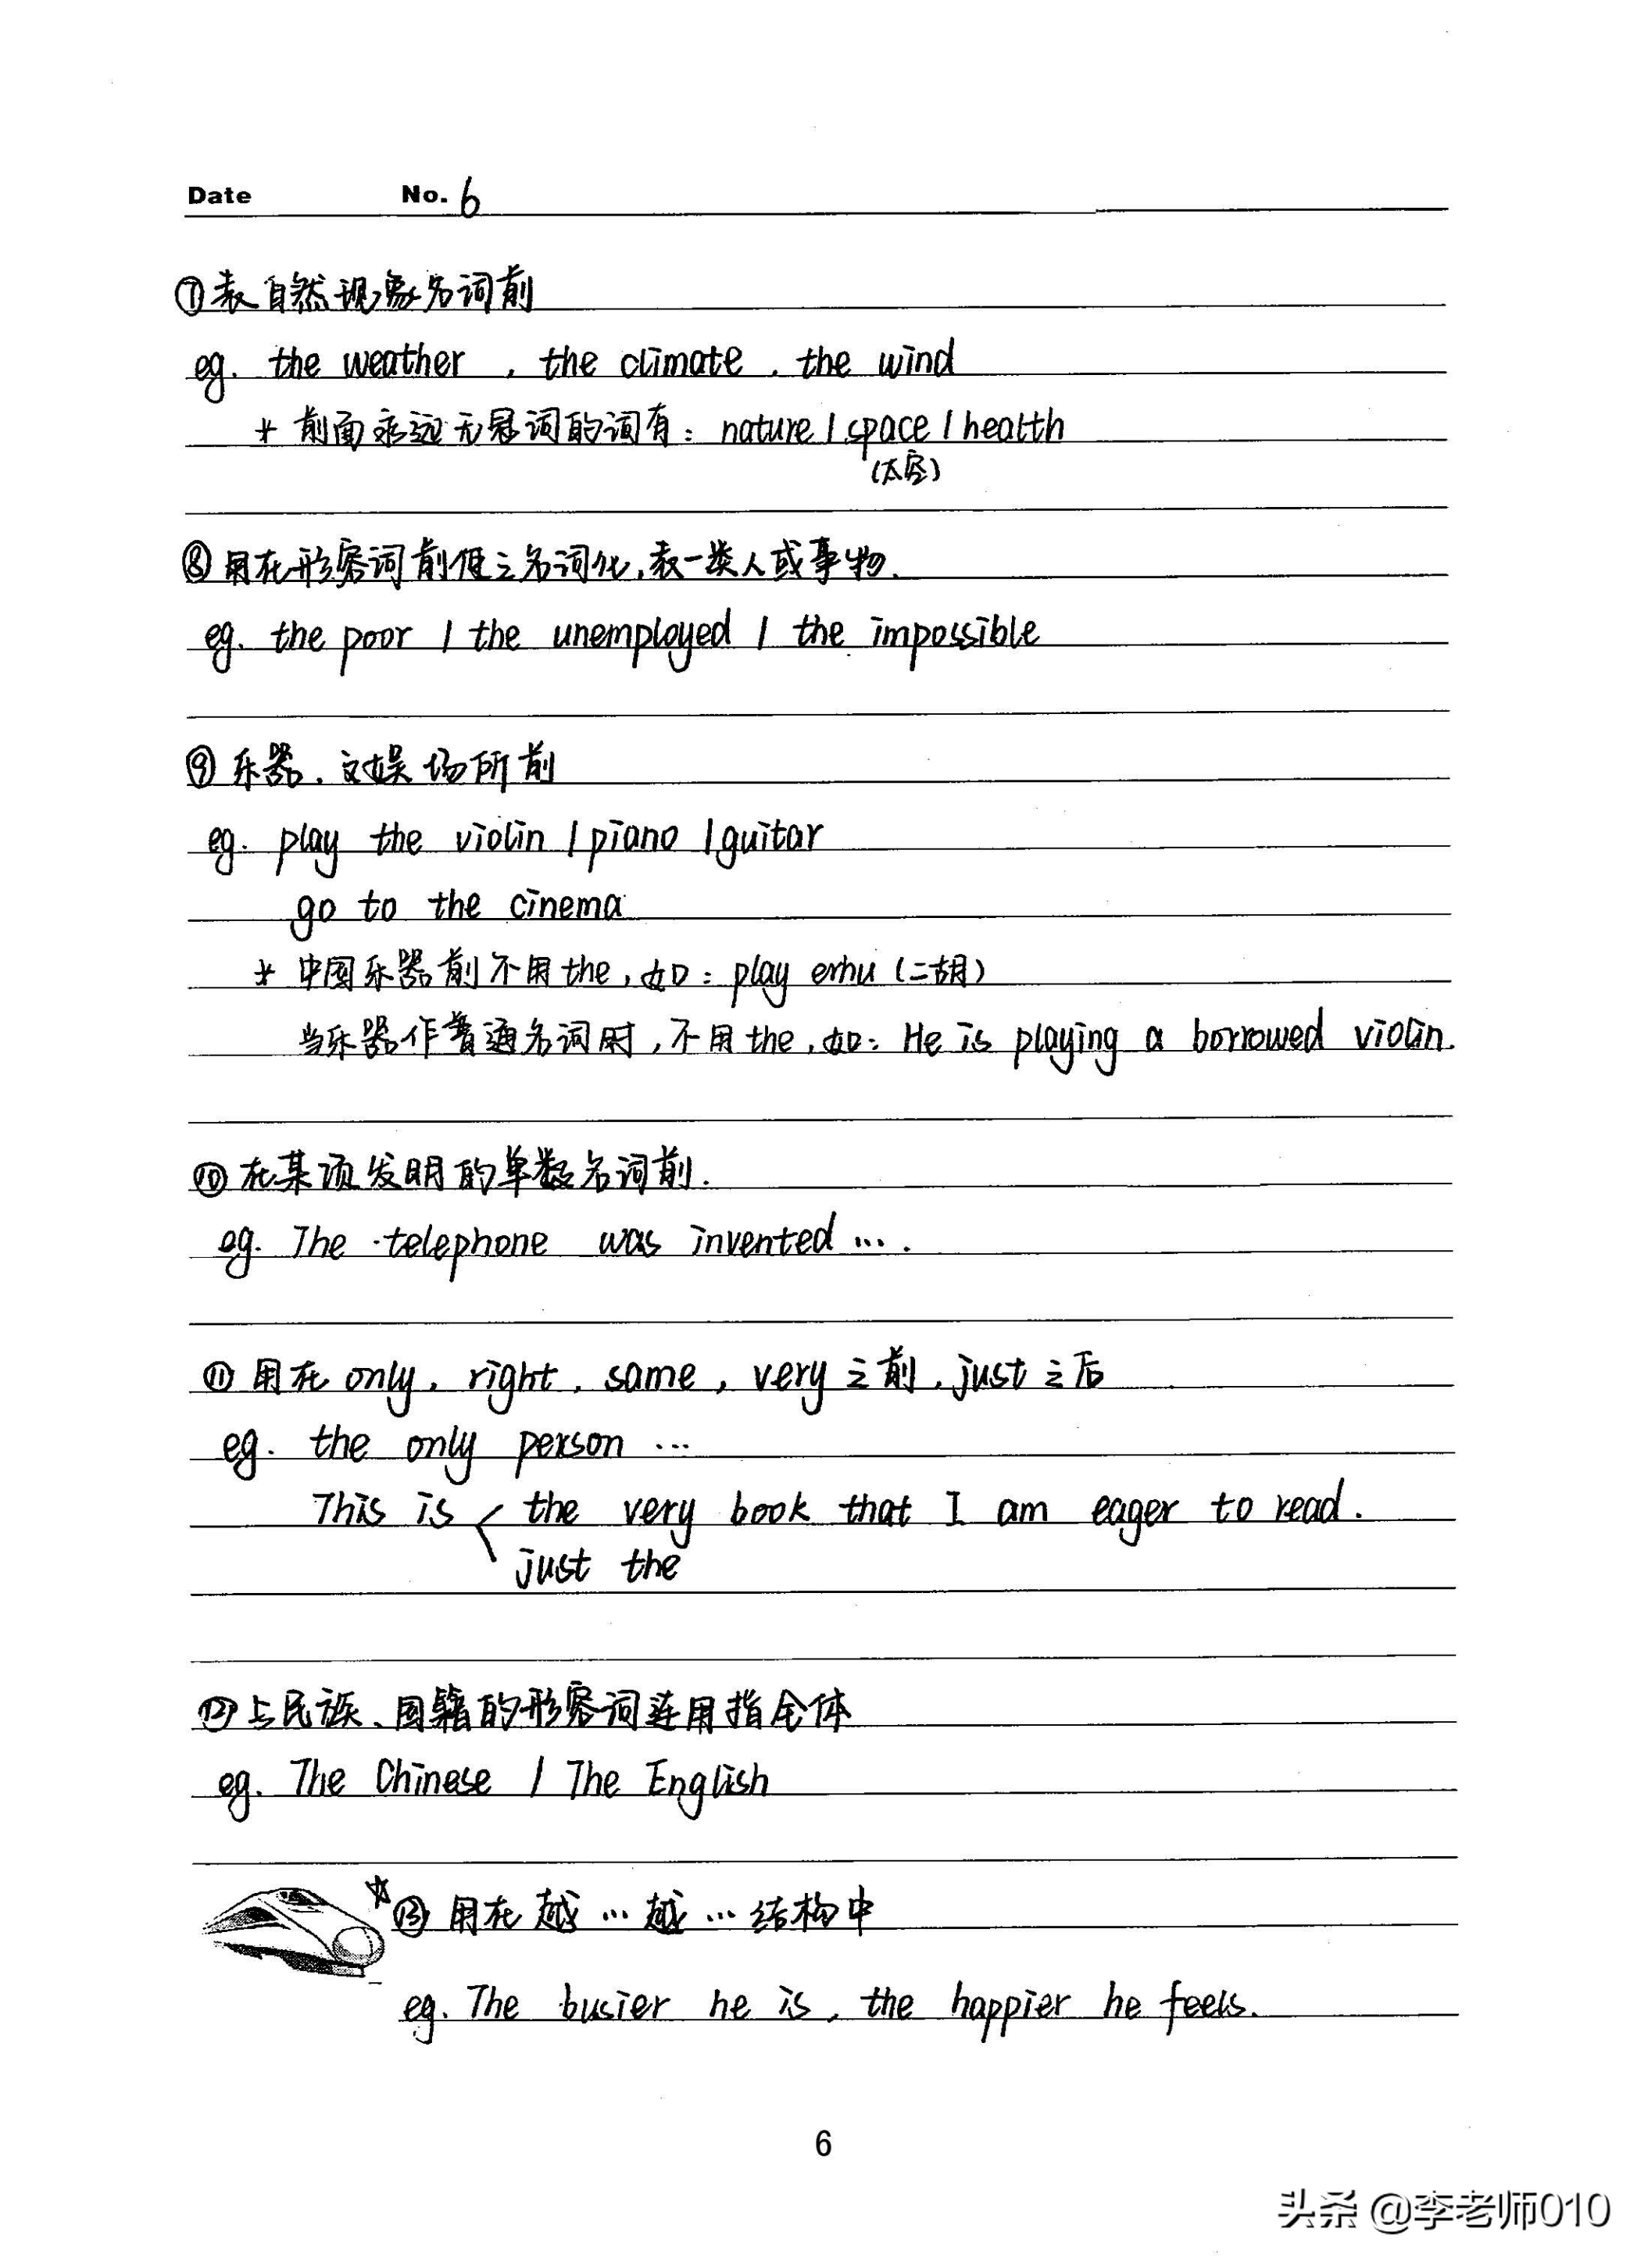 Date No. 6
⑦表自然现象名词前
eg. the weather , the climate , the wind
* 前面永远无冠词的词有: nature / space / health
(太空)
⑧用在形容词前使之名词化,表一类人或事物.
eg. the poor / the unemployed / the impossible
⑨乐器、文娱场所前
eg. play the violin / piano / guitar
go to the cinema
* 中国乐器前不用the,如: play erhu (二胡)
当乐器作普通名词时,不用the,如: He is playing a borrowed violin.
⑩在某项发明的单数名词前.
eg. The telephone was invented ….
⑪用在only, right, same, very之前, just之后
eg. the only person …
This is < the very book that I am eager to read.
just the
⑫与民族、国籍的形容词连用指全体
eg. The Chinese / The English
☆⑬用在越…越…结构中
eg. The busier he is, the happier he feels.
6
头条 @李老师010